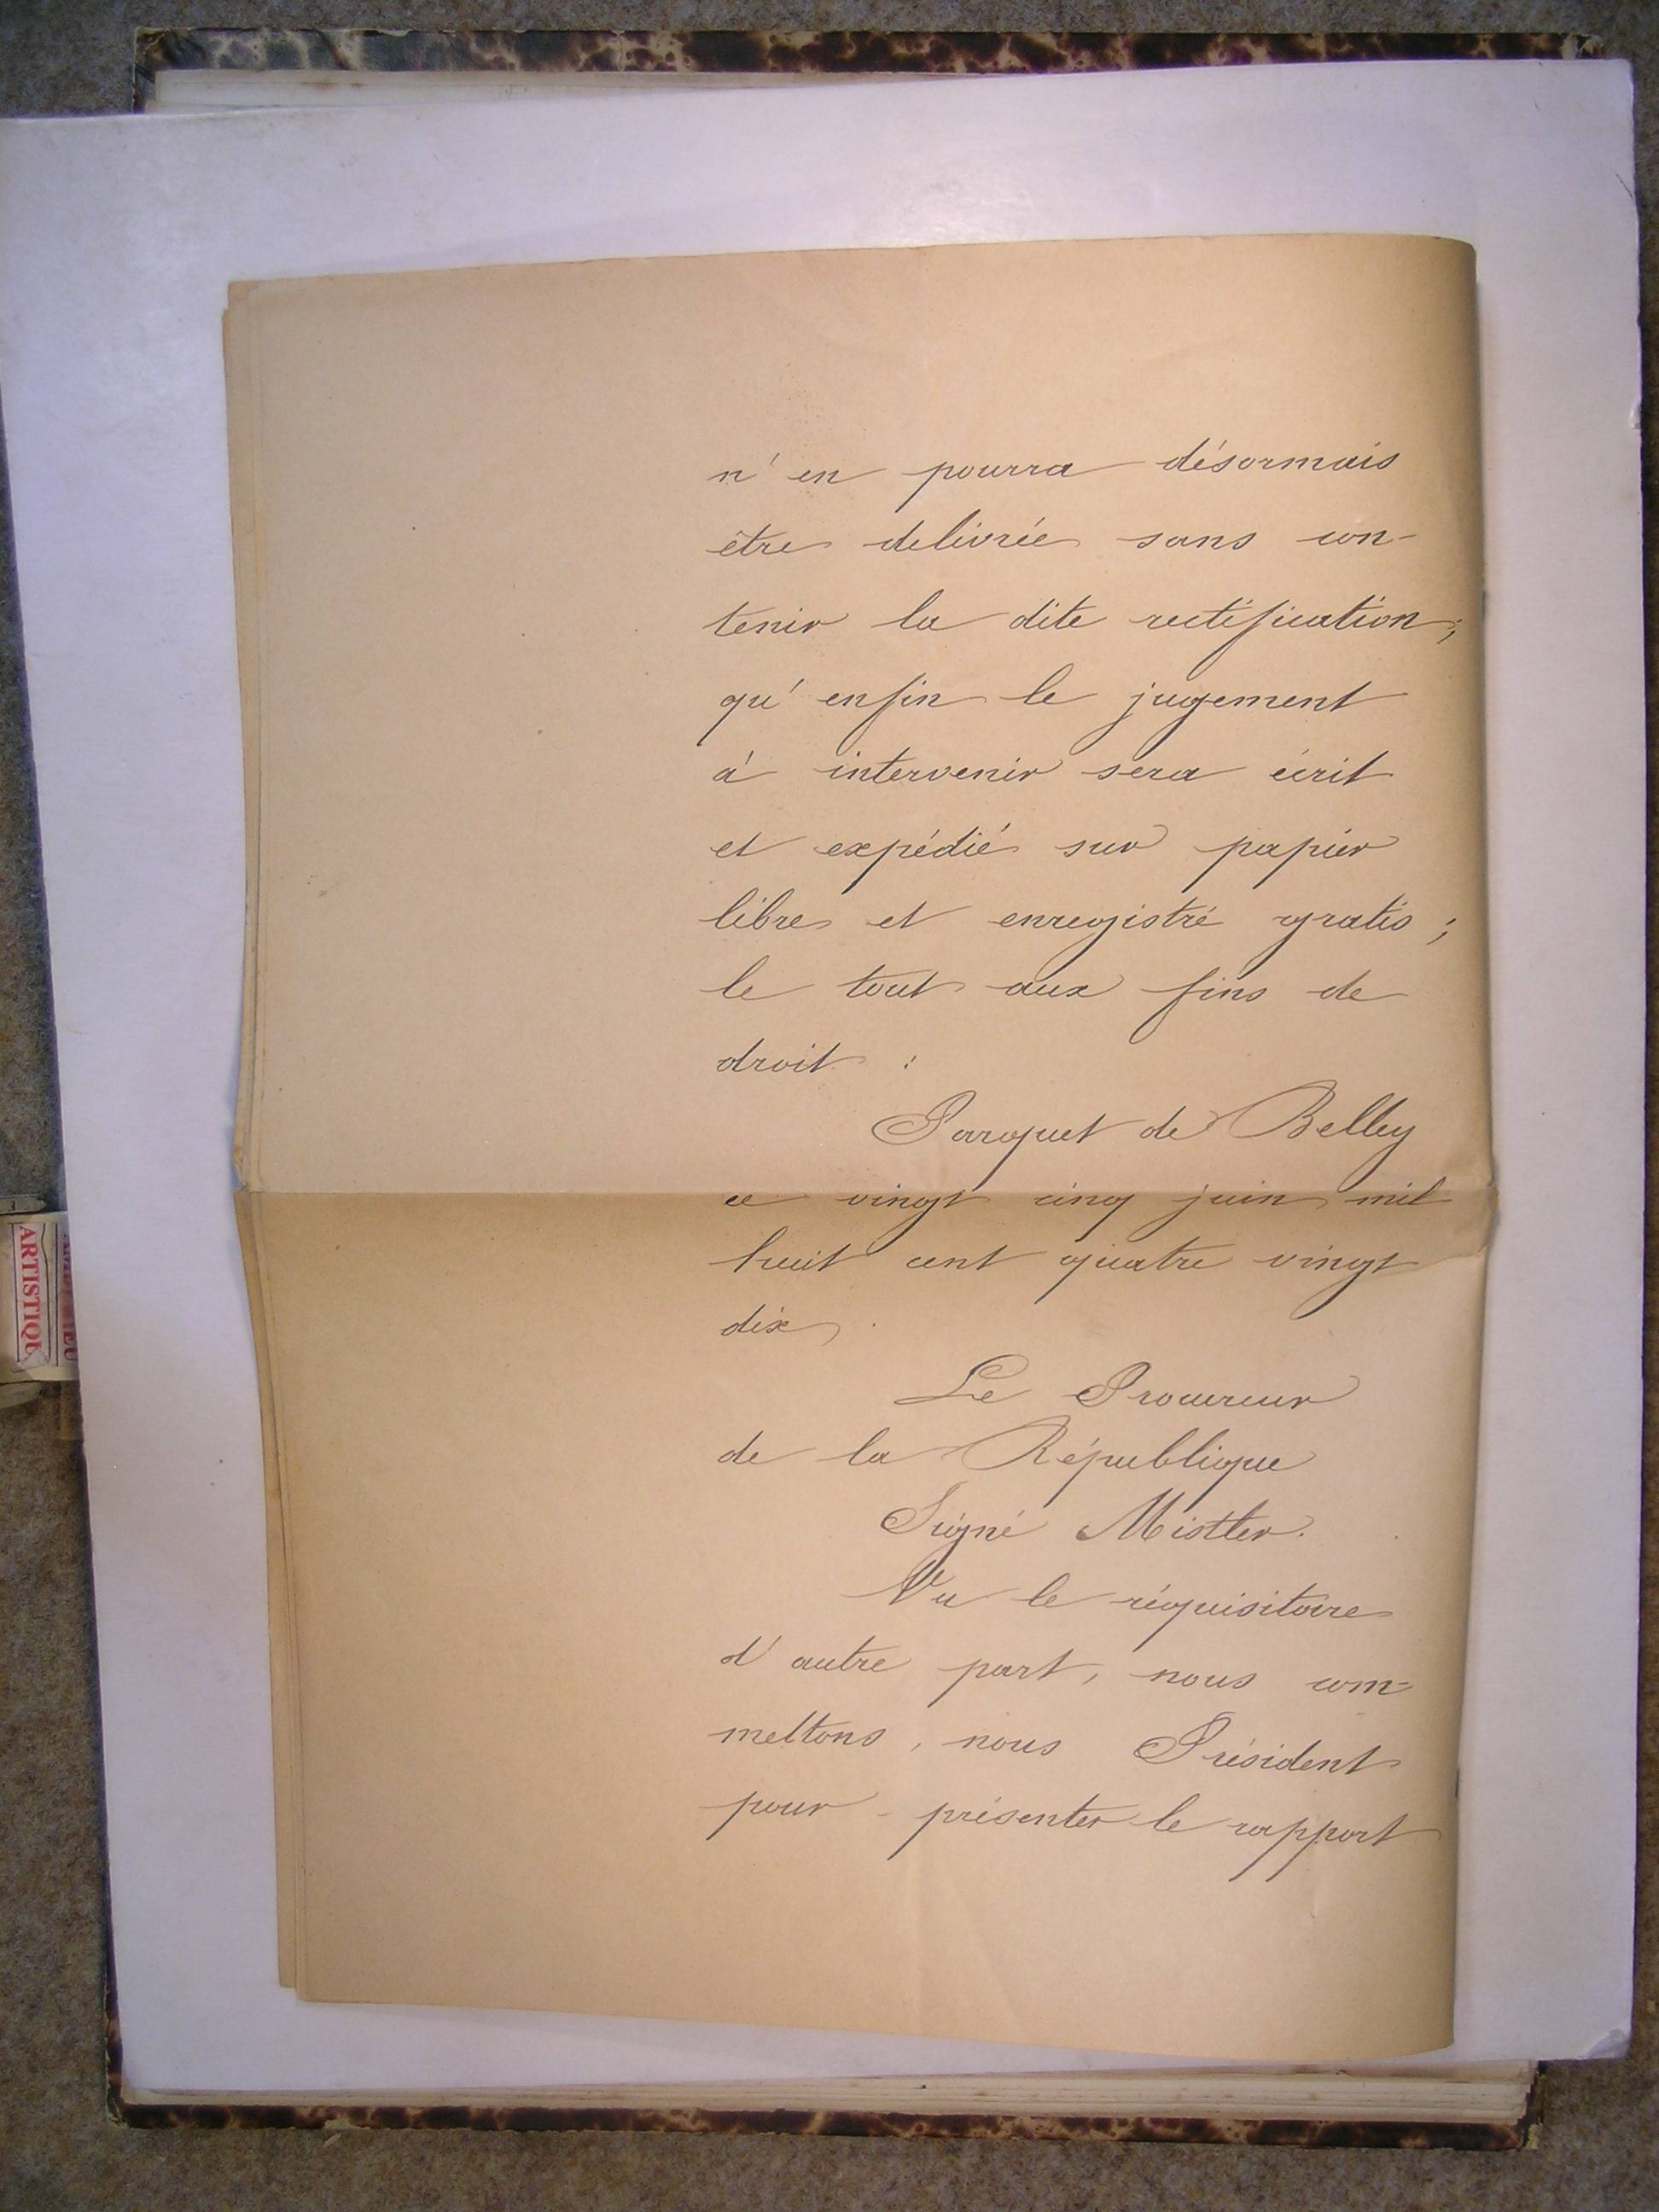 n'en pourra désormais
être delivrée sans con-
tenir la dite rectification;
qu'enfin le jugement
à intervenir sera écrit
et expédié sur papier
libre et enregistré gratis;
le tout aux fins de
droit :
Parquet de Belley
ce vingt cinq juin mil
huit cent quatre vingt
dix.
Le Procureur
de la République
Signé Mistler.
Vu le réquisitoire
d'autre part, nous com=
mettons, nous Président
pour présenter le rapport
ARTISTIQU